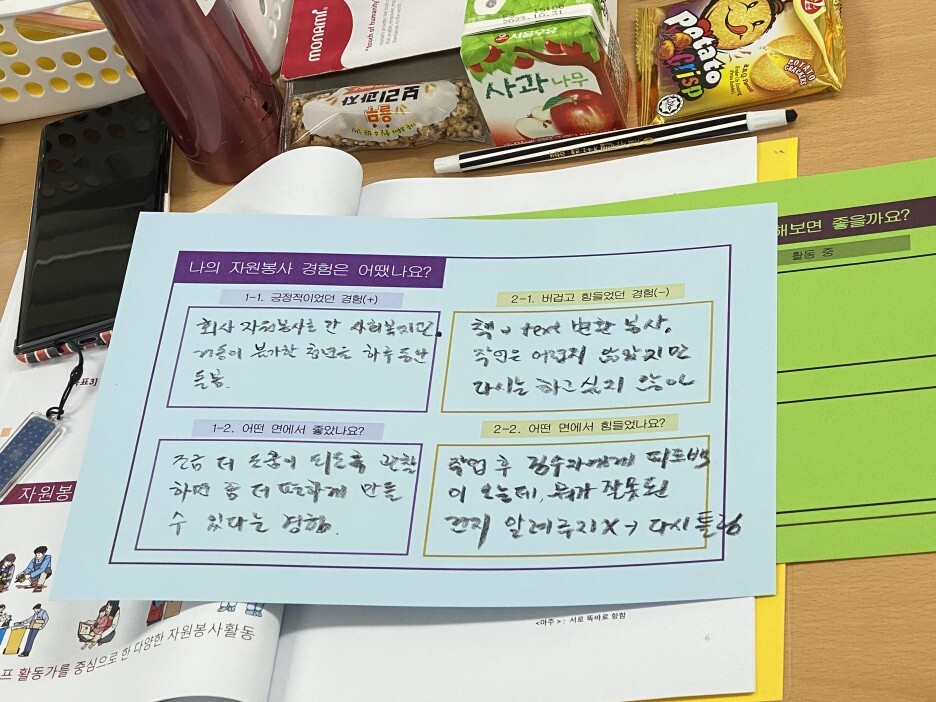 monami
"touch of humanity"
2023.10.31
서울우유
사과나무
보리과자
Potato
Crisp
POTATO
CRACKERS
해보면 좋을까요?
활동 중
나의 자원봉사 경험은 어땠나요?
1-1. 긍정적이었던 경험(+)
회사 자원봉사로 간 사회복지관.
거동이 불가한 청년을 하루동안
돌봄.
2-1. 버겁고 힘들었던 경험(-)
책 → text 변환 봉사.
작업은 어렵지 않았지만
다시는 하고싶지 않아
1-2. 어떤 면에서 좋았나요?
조금 더 도움이 되도록 관찰
하면 좀 더 편하게 만들
수 있다는 경험.
2-2. 어떤 면에서 힘들었나요?
작업 후 검수자에게 피드백
이 오는데, 뭐가 잘못된
건지 알려주지X → 다시 틀림
표3]
자원봉
프 활동가를 중심으로 한 다양한 자원봉사활동
<마주> : 서로 똑바로 향함
6